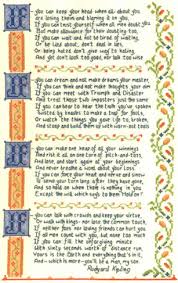 If you can keep your head when all about you
are losing theirs and blaming it on you
If you can trust yourself when all men doubt you
But make allowance for their doubting too,
If you can wait and not be tired of waiting,
Or be lied about, don't deal in lies,
Or being hated don't give way to hating
And yet don't look too good, nor talk too wise
If you can dream and not make dreams your master,
If you can think and not make thoughts your aim
If you can meet with Triumph and Disaster
And treat those two imposters just the same
If you can bear to hear the truth you've spoken
Twisted by knaves to make a trap for fools,
Or watch the things you gave life to, broken,
And stoop and build them up with worn-out tools
If you can make one heap of all your winnings
And risk it all on one turn of pitch-and-toss
And lose, and start again at your beginnings
And never breathe a word about your loss
If you can force your heart and nerve and sinew
To serve your turn long after they have gone
And so hold on when there is nothing in you
Except the will which says to them "Hold on!"
If you can talk with crowds and keep your virtue,
Or walk with kings - nor lose the common touch,
If neither foes nor loving friends can hurt you
If all men count with you, but none too much
If you can fill the unforgiving minute
With sixty seconds worth of distance run
Yours is the Earth and everything that's in it,
And - which is more - you'll be a man, my son
Rudyard Kipling